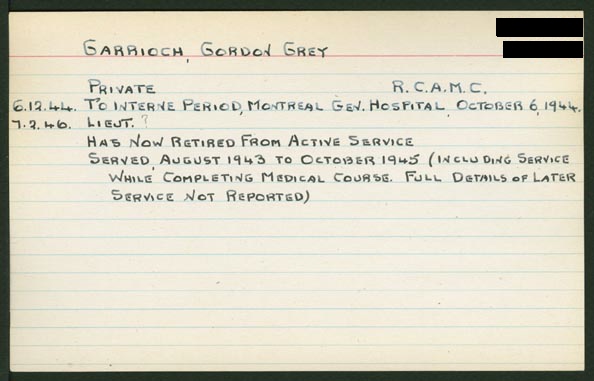 GARRIOCH, GORDON GREY
PRIVATE R.C.A.M.C.
6.12.44. TO INTERNE PERIOD, MONTREAL GEN. HOSPITAL, OCTOBER 6, 1944.
7.2.46. LIEUT. ?
HAS NOW RETIRED FROM ACTIVE SERVICE
SERVED, AUGUST 1943 TO OCTOBER 1945 (INCLUDING SERVICE
WHILE COMPLETING MEDICAL COURSE. FULL DETAILS OF LATER
SERVICE NOT REPORTED)